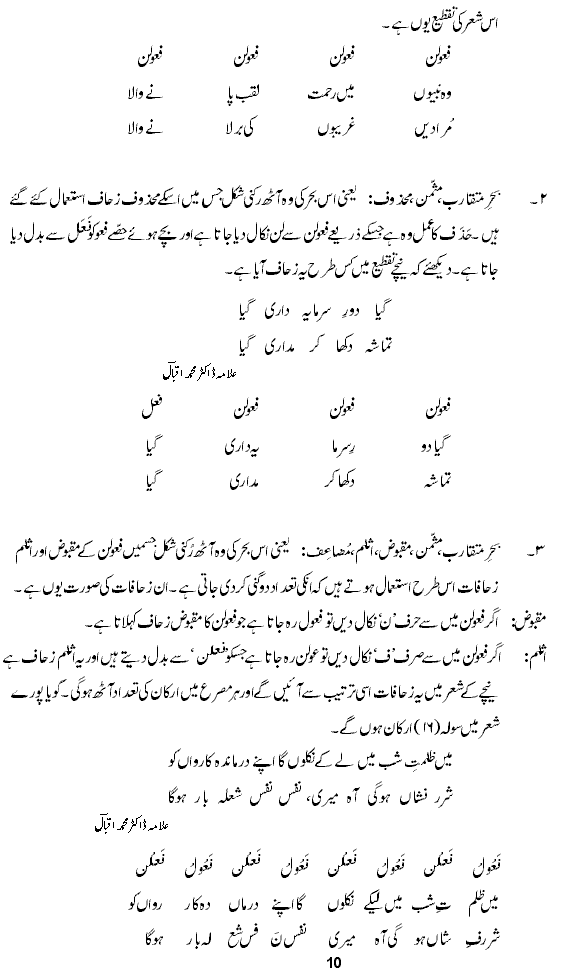 اس شعر کی تقطیع یوں ہے ۔
فعولن فعولن فعولن فعولن
وہ نبیوں میں رحمت لقب پا نے والا
مُرادیں غریبوں کی بر لا نے والا
۲۔ بحرِ متقارب، مثمّن، محذوف: یعنی اس بحر کی وہ آٹھ رکنی شکل جس میں اسکے محذوف زحاف استعمال کئے گئے
ہیں ۔ حَذف کا عمل وہ ہے جسکے ذریعے فعولن سے لن نکال دیا جاتا ہے اور بچے ہوئے حصّے فعو کو فَعَل سے بدل دیا
جاتا ہے۔ دیکھئے کہ نیچے تقطیع میں کس طرح یہ زحاف آیا ہے۔
گیا دورِ سرمایہ داری گیا
تماشہ دکھا کر مداری گیا
علامہ ڈاکٹر محمد اقبالؔ
فعولن فعولن فعولن فعل
گیا دو رِسرما یہ داری گیا
تماشہ دکھا کر مداری گیا
۳۔ بحرِ متقارب، مثمّن، مقبوض، اثلم، مُضاعِف: یعنی اس بحر کی وہ آٹھ رُکنی شکل جسمیں فعولن کے مقبوض اور اثلم
زحافات اس طرح استعمال ہوتے ہیں کہ انکی تعداد دوگنی کر دی جاتی ہے ۔ ان زحافات کی صورت یوں ہے ۔
مقبوض: اگر فعولن میں سے حرف ’ن‘ نکال دیں تو فعول رہ جاتا ہے جو فعولن کا مقبوض زحاف کہلاتا ہے۔
اثلم: اگر فعولن میں سے صرف ’ف‘ نکال دیں تو عولن رہ جاتا ہے جسکو فعلن ‘ سے بدل دیتے ہیں اور یہ اثلم زحاف ہے
نیچے کے شعر میں یہ زحافات اسی ترتیب سے آئیں گے اور ہر مصرع میں ارکان کی تعداد آٹھ ہوگی ۔ گویا پورے
شعر میں سولہ (۱۶) ارکان ہوں گے۔
میں ظلمتِ شب میں لے کے نکلوں گا اپنے درماندہ کارواں کو
شرر فشاں ہوگی آہ میری، نفس نفس شعلہ بار ہوگا
علامہ ڈاکٹر محمد اقبالؔ
فَعُولُ فَعلُن فَعُولُ فَعلُن فَعُولُ فَعلُن فَعُولُ فَعلُن
میں ظلم تِ شب میں لیکے نکلوں گا اپنے درماں دہ کار رواں کو
شررف شاں ہو گی آہ میری نفس نَ فس شع لہ بار ہوگا
10